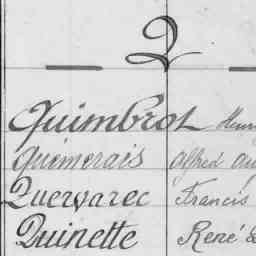 Q
Quimbrot Henri
Quémerais Alfred Au
Quervarec Francis
Quinette René